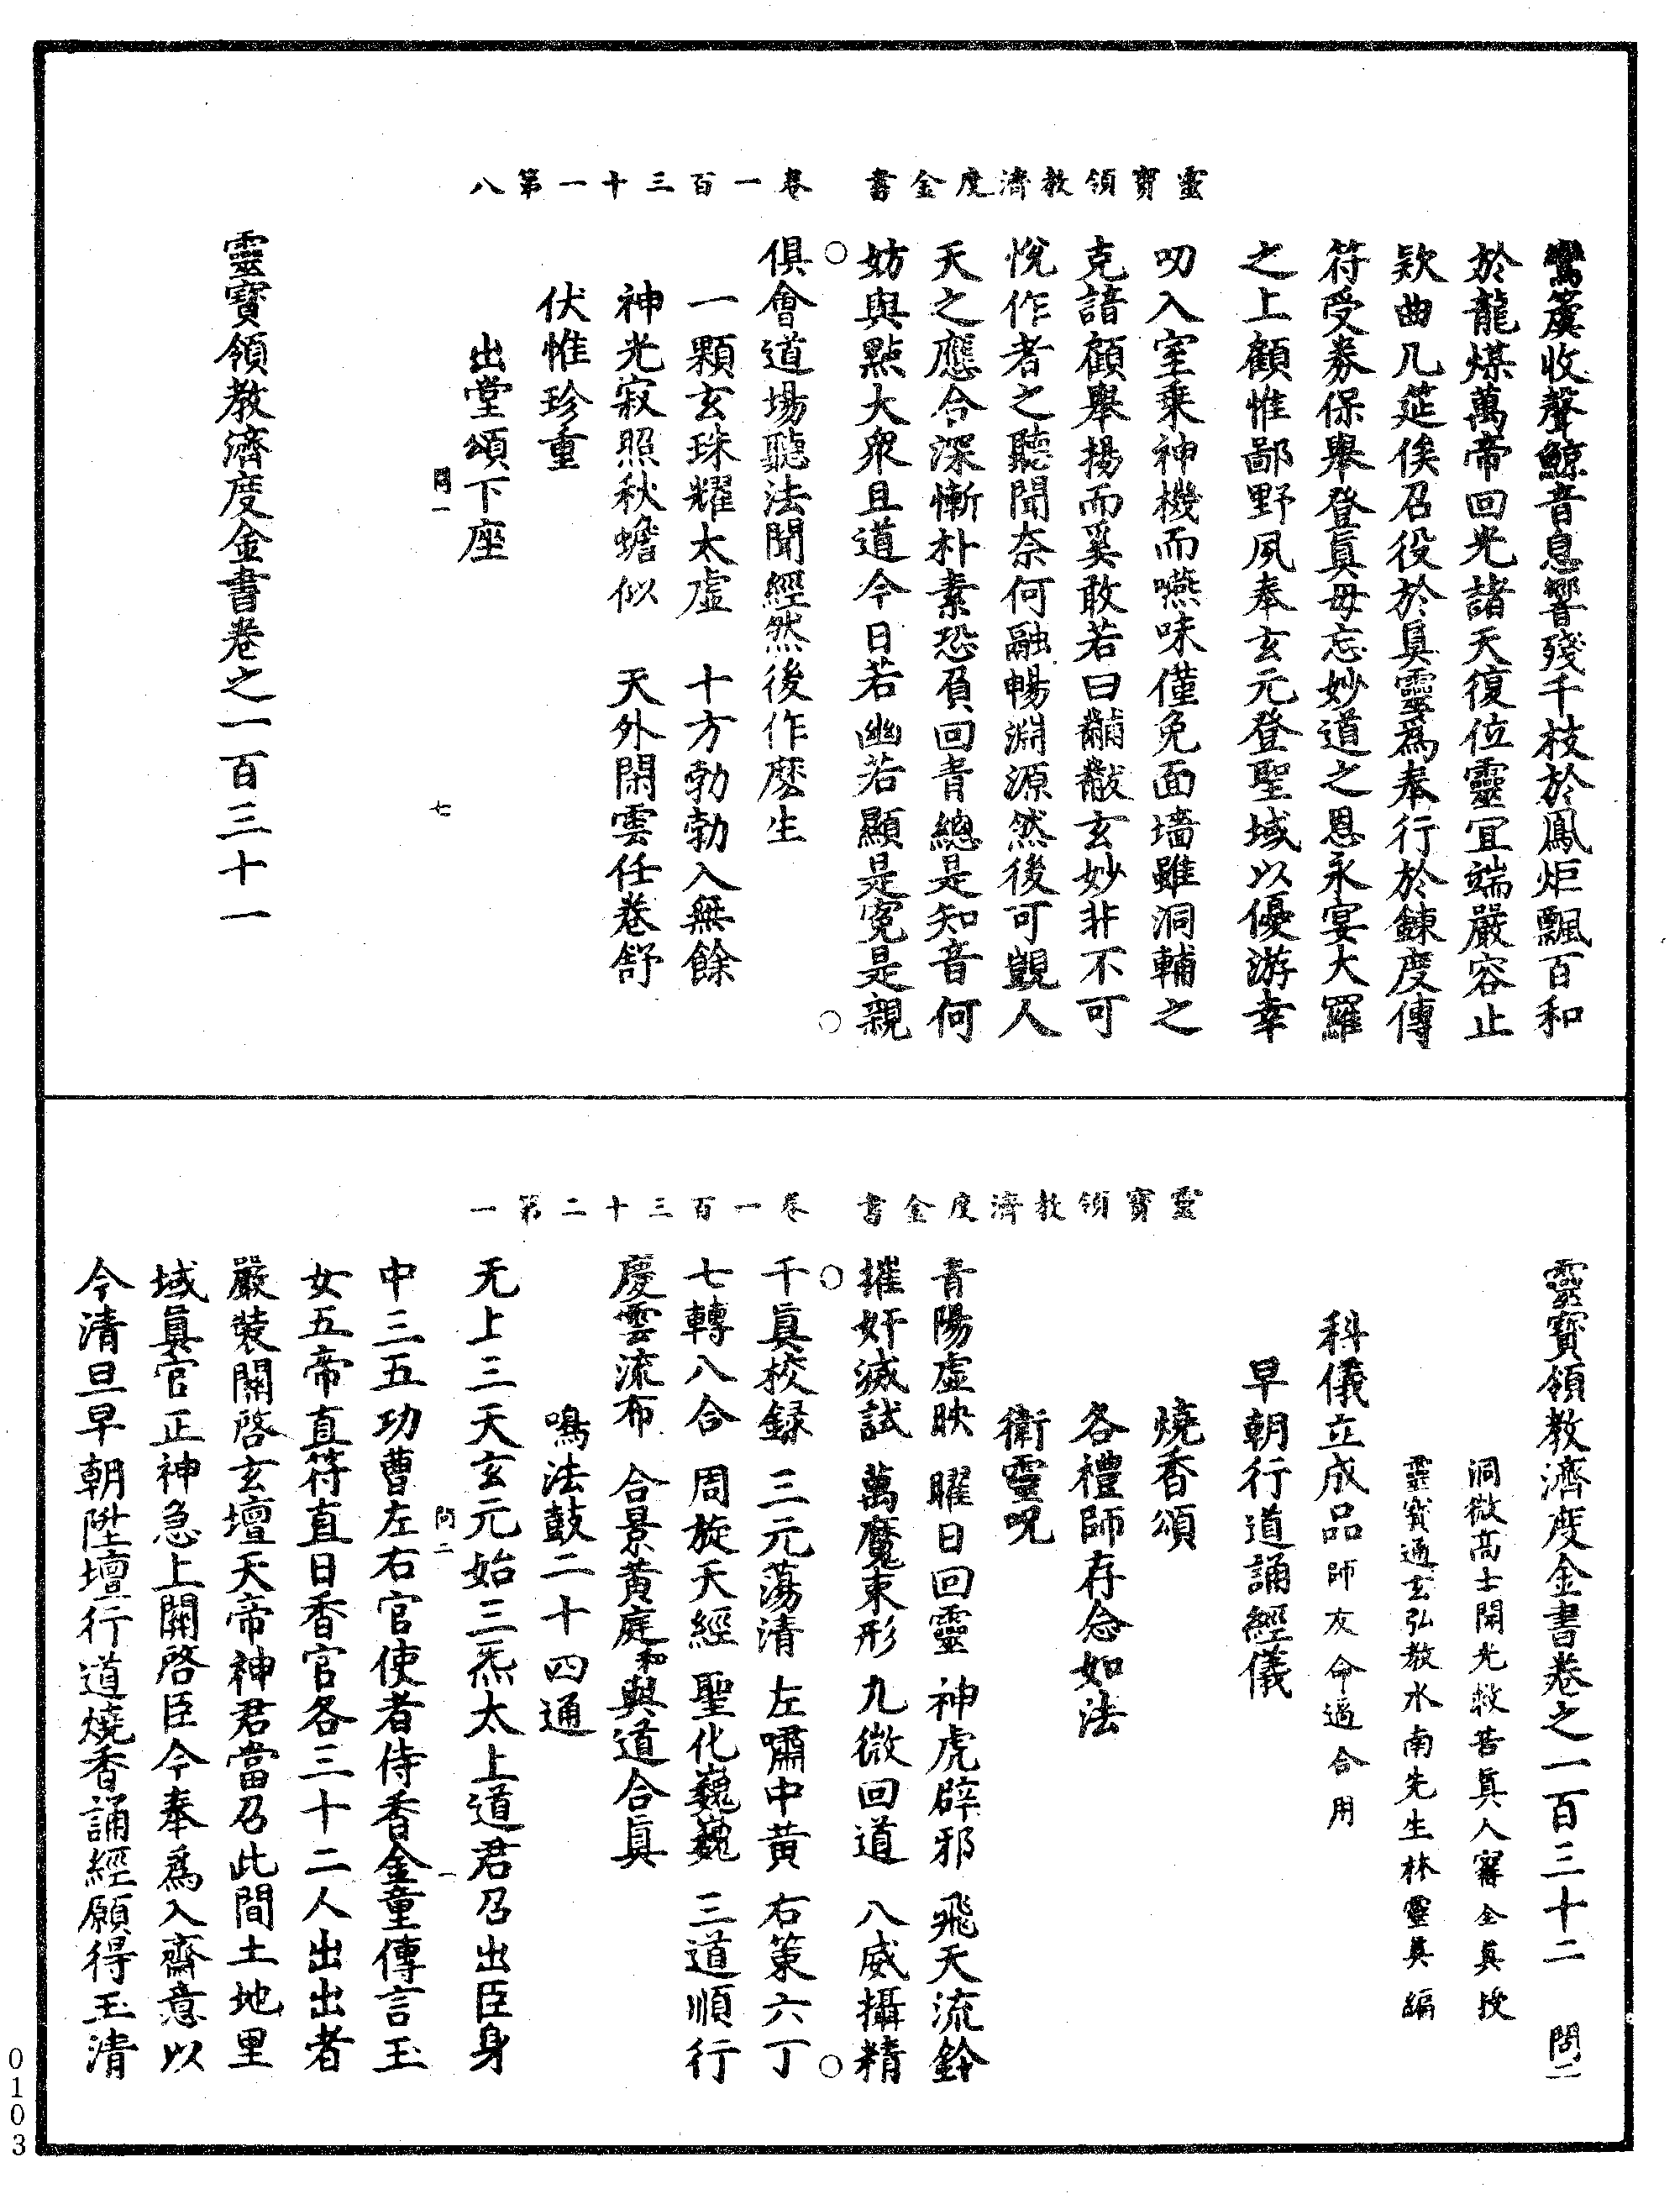 靈寶領教濟度金書　卷一百三十一第八
鸞簴收聲鯨音息響殘千枝於鳳炬飄百和
於龍煤萬帝回光諸天復位靈宜端嚴容止
欵曲几筵俟召役於真靈爲奉行於鍊度傳
符受券保舉登眞毋忘妙道之恩永宴大羅
之上顧惟鄙野夙奉玄元登聖域以優游幸
叨入室乘神機而嚥味僅免面墻雖洞輔之
克諳顧舉揚而奚敢若曰黼黻玄妙非不可
悅作者之聽聞奈何融暢淵源然後可觀人
天之應合深慚朴素恐負回青總是知音何
妨與點大衆且道今日若幽若顯是寃是親
俱會道場聽法聞經然後作麽生
一顆玄珠耀太虛　十方勃勃入無餘
神光寂照秋蟾似　天外閑雲任卷舒
伏惟珍重
出堂頌下座
問一　七
靈寶領教濟度金書卷之一百三十一
靈寶領教濟度金書　卷一百三十二第一
靈寶領教濟度金書卷之一百三十二　問二
洞微高士開光救苦眞人寗全眞授
靈寶通玄弘教水南先生林靈眞編
科儀立成品師友命過合用
早朝行道誦經儀
燒香頌
各禮師存念如法
衛靈呪
青陽虛映　曜日回靈　神虎辟邪　飛天流鈴
摧奸滅試　萬魔束形　九微回道　八威攝精
千眞校録　三元蕩清　左嘯中黄　右策六丁
七轉八合　周旋天經　聖化巍巍　三道順行
慶雲流布　合景黄庭和與道合眞
鳴法鼓二十四通
无上三天玄元始三炁太上道君召出臣身
中三五功曹左右官使者侍香金童傳言玉
女五帝直符直日香官各三十二人出出者
嚴裝關啓玄壇天帝神君當召此間土地里
域眞官正神急上關啓臣今奉爲入齋意以
今清旦早朝陞壇行道燒香誦經願得玉清
問二　一
0103